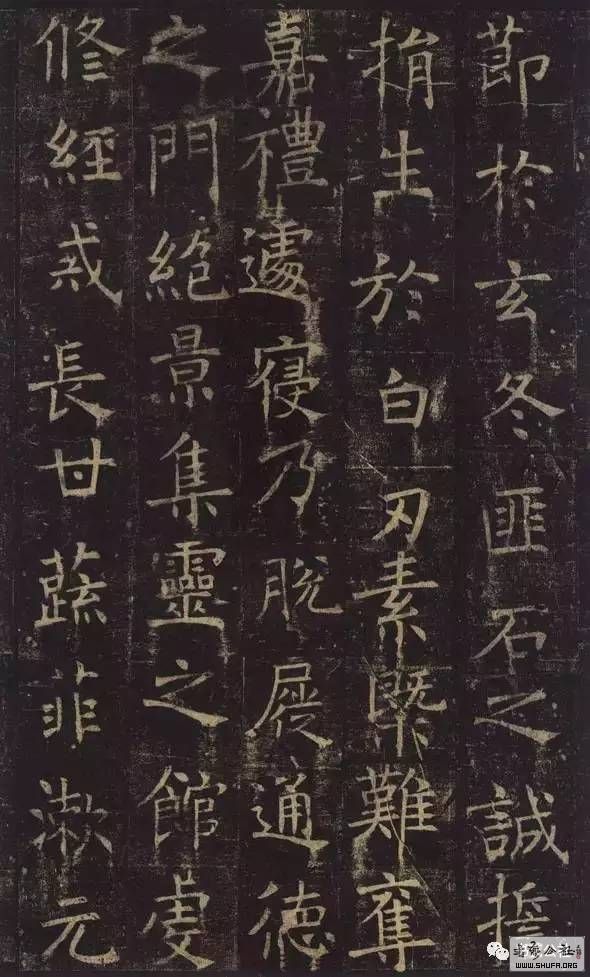 節於玄冬匪石之誠誓
捐生於白刃素槩難奪
嘉禮遽寢乃脫屣通德
之門絕景集靈之館虔
修經戒長甘蔬菲漱元
WWW.SHUFA.ORG